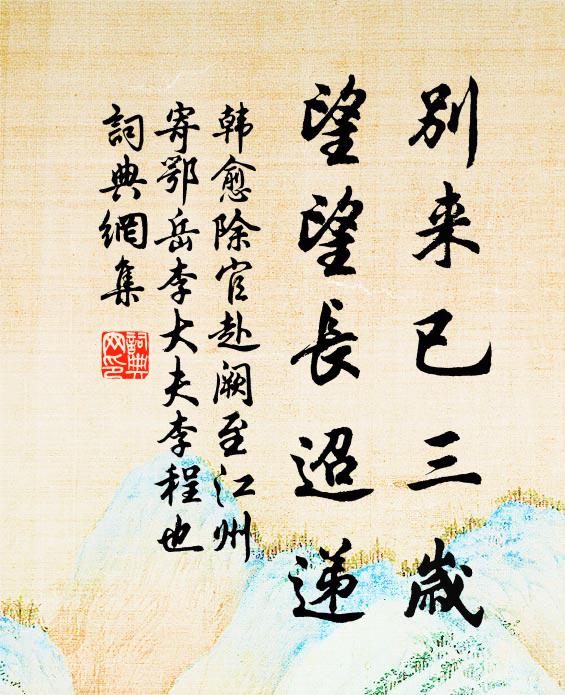 別来已三歳
望望長迢遞
韩愈除官赴阙至江州
寄鄂岳李大夫李程也
詞典網集
詞典网印